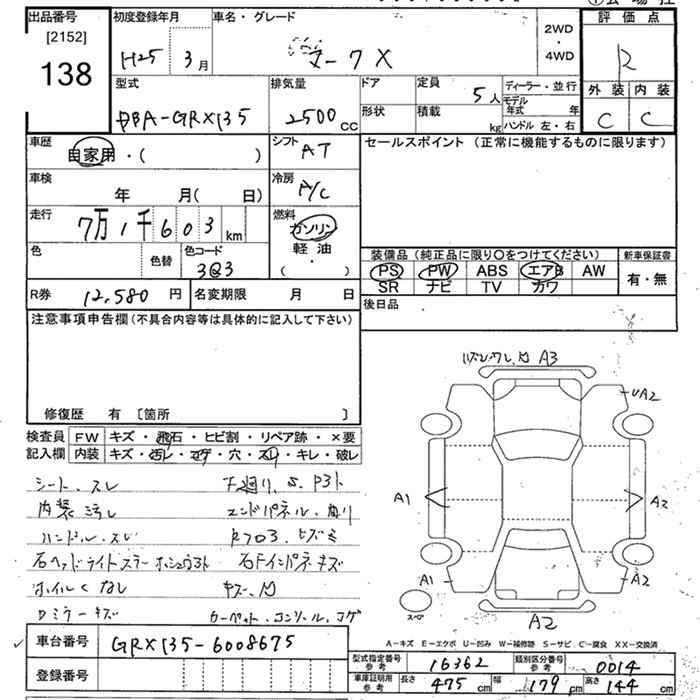 出品番号
[2152]
138
初度登録年月
H25 3月
車名・グレード
マークX
2WD
・
4WD
評価点
R
型式
DBA-GRX135
排気量
2500cc
ドア
形状
定員
5人
積載
kg
ディーラー・並行
モデル年式 年
ハンドル 左・右
外装 内装
C C
車歴
自家用・( )
シフト
AT
セールスポイント (正常に機能するものに限ります)
車検
年 月( 日)
冷房
A/C
走行
7万1千603km
燃料
ガソリン
・
軽油
( ・ )
色
色替
色コード
3Q3
装備品(純正品に限り○をつけてください)
新車保証書
PS PW ABS エアB AW
SR ナビ TV カワ
有・無
R券 12,580円
名変期限 月 日
後日品
注意事項申告欄(不具合内容等は具体的に記入して下さい)
修復歴 有 〔箇所 〕
検査員記入欄
FW キズ・飛石・ヒビ割・リペア跡・×要
内装 キズ・汚レ・コゲ・穴・スレ・キレ・破レ
シート、スレ
内装 汚レ
ハンドル、スレ
下廻り、S、P3ト
エンドパネル、曲り
キズ、凹
カーペット、コンソール、コゲ
A3
UA2
A1
A2
A1
A2
スペア
A2
A-キズ E-エクボ U-凹み W-補修跡 S-サビ C-腐食 XX-交換済
車台番号
GRX135-6008675
登録番号
型式指定番号参考
16362
類別区分番号参考
0014
車庫証明用参考
長さ 475cm
幅 179cm
高さ 144cm